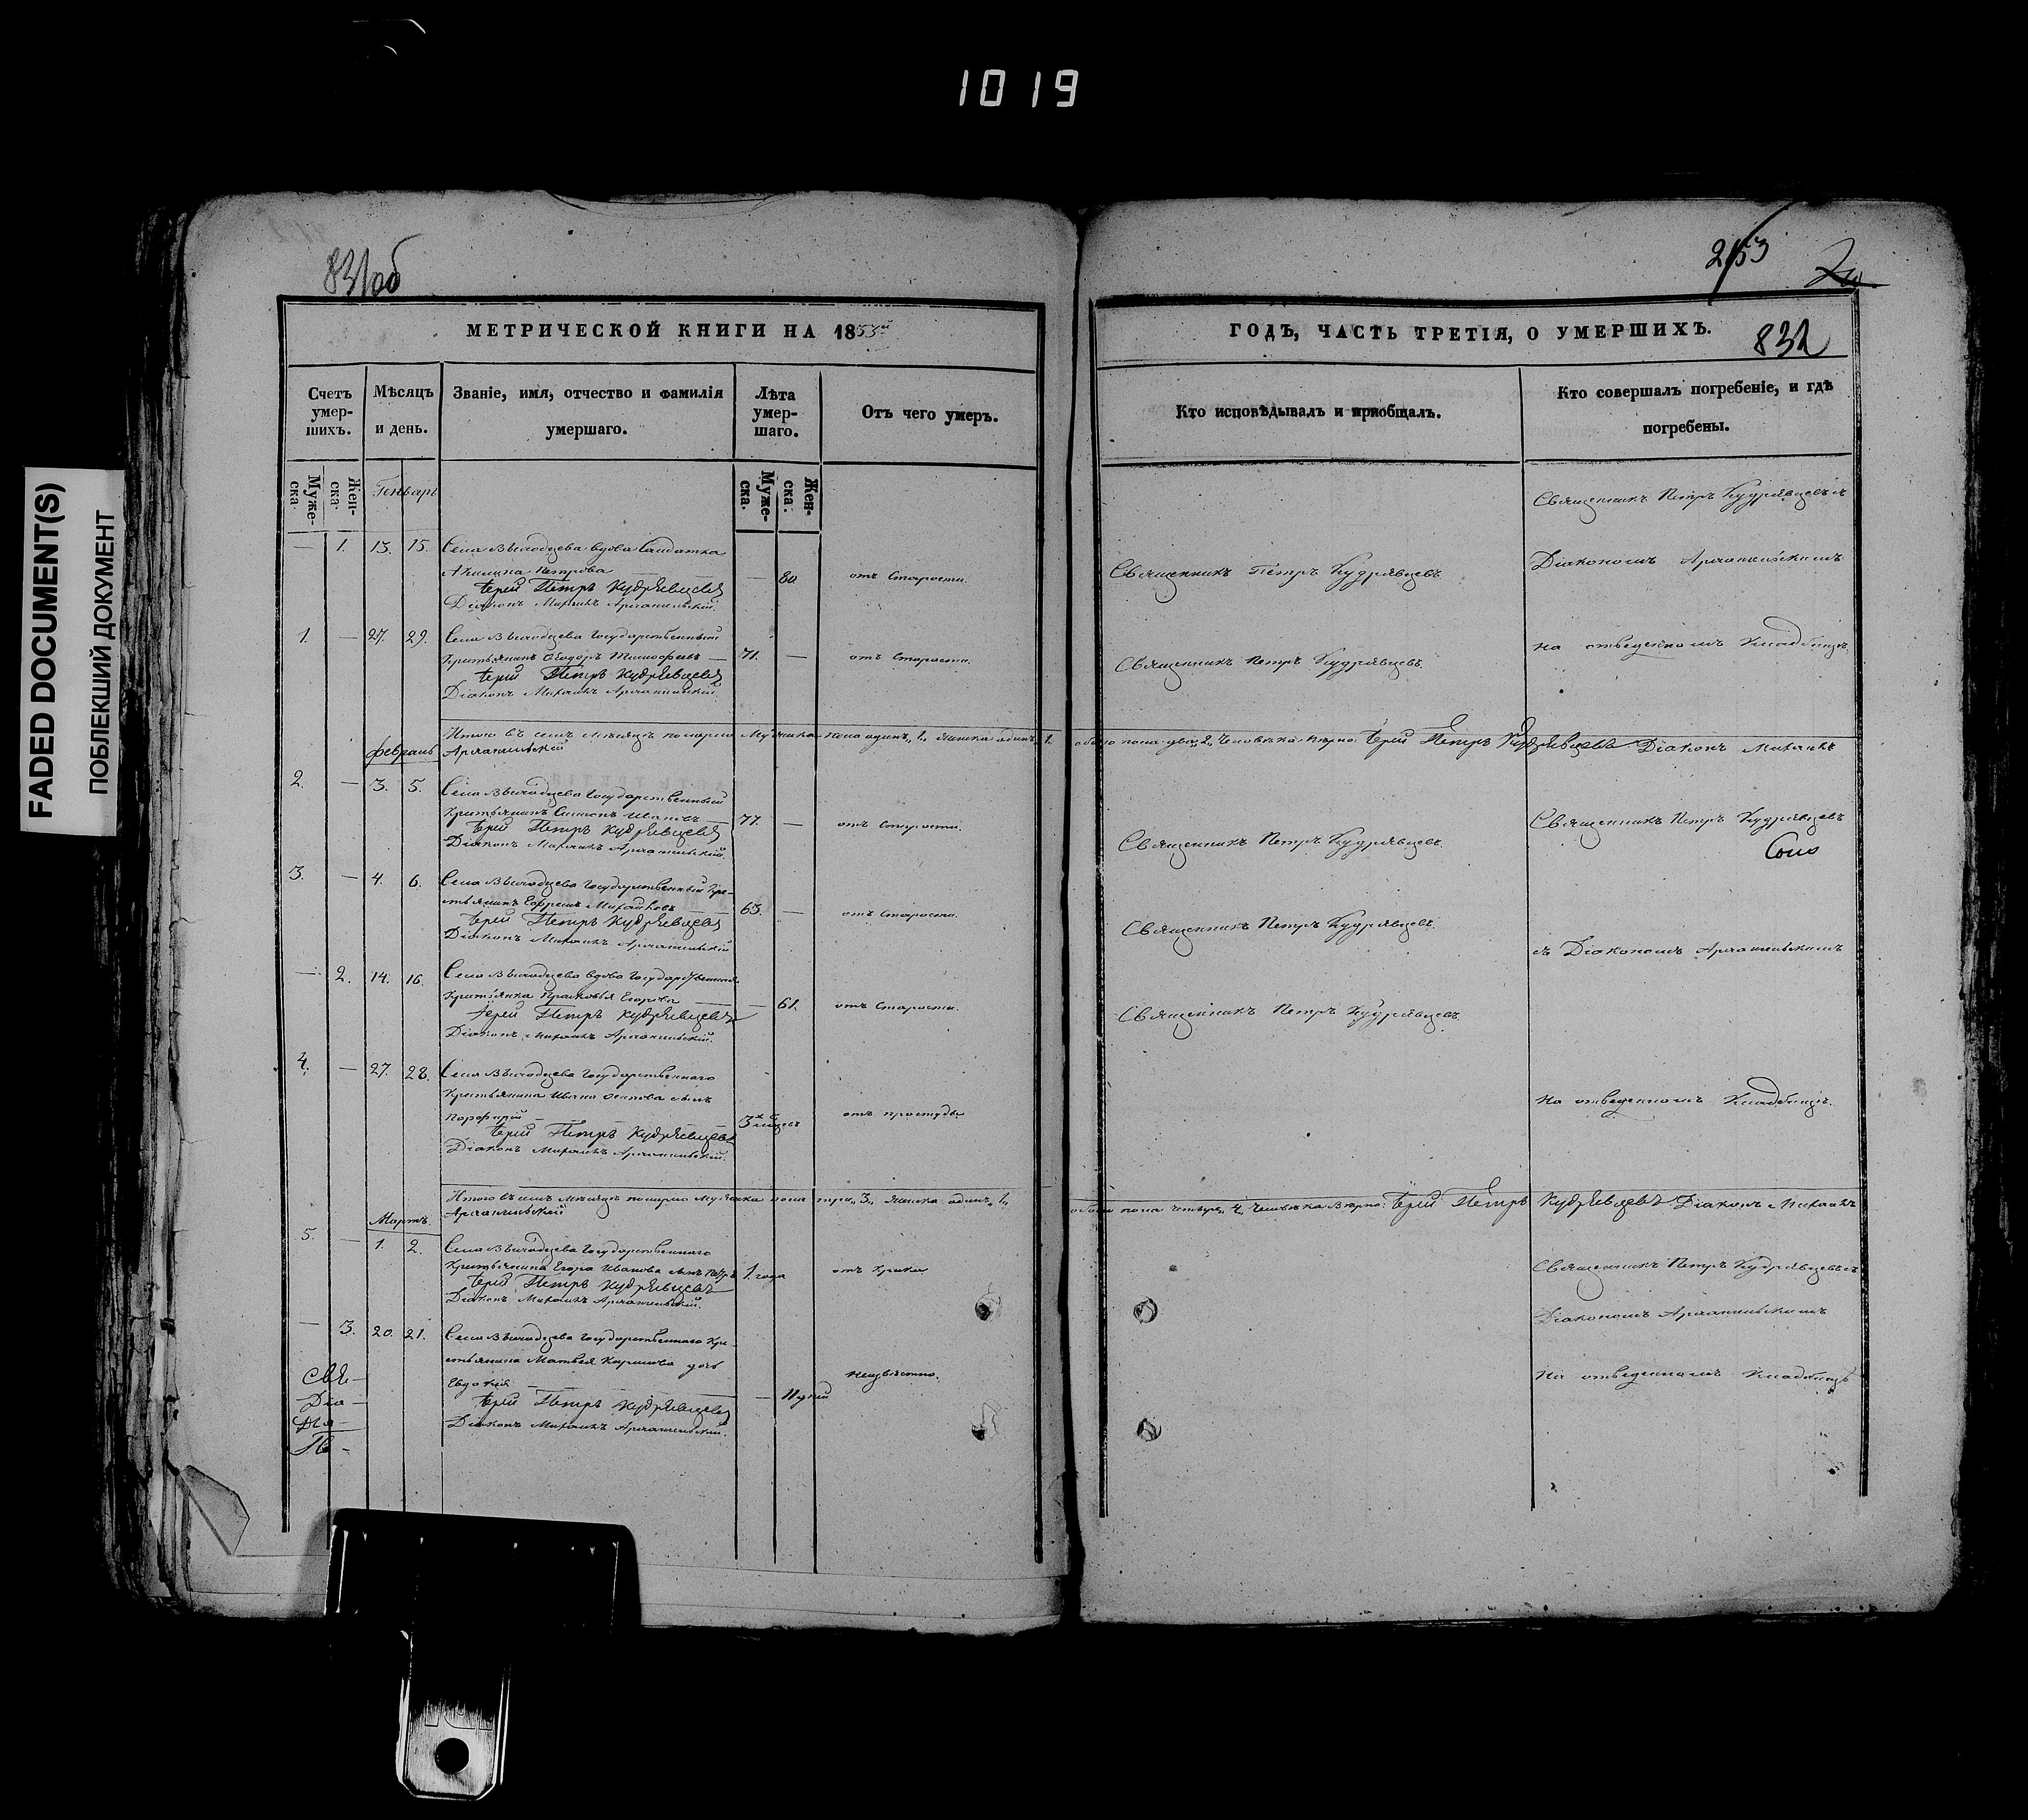 1019
FADED DOCUMENT(S)
ПОБЛЕКШИЙ ДОКУМЕНТ
831об
МЕТРИЧЕСКОЙ КНИГИ НА 1853й
Счетъ умер-шихъ.
Мѣсяцъ и день.
Званіе, имя, отчество и фамилія умершаго.
Лѣта умер-шаго.
Отъ чего умеръ.
Муже-ска.
Жен-ска.
Генварь
Муже-ска.
Жен-ска.
— 1. 13. 15. Села вдова Солдатка
Петрова — 80. отъ старости.
Іерей Петръ Кудрявцевъ
Діаконъ Михаилъ Архангельскій.
1. — 27. 29. Села Государственный
Крестьянинъ Ѳеодоръ Тимоѳеевъ — 71. — отъ старости.
Іерей Петръ Кудрявцевъ
Діаконъ Михаилъ Архангельскій.
Итого въ семъ мѣсяцѣ померло Мужеска пола одинъ „1„ Женска одинъ „1.
Февраль
Архангельскій
2. — 3. 5. Села Государственный
Крестьянинъ Ивановъ — 77. — отъ старости.
Іерей Петръ Кудрявцевъ
Діаконъ Михаилъ Архангельскій.
3. — 4. 6. Села Государственный Кре-
стьянинъ Ефремъ Михайловъ — 63. — отъ старости.
Іерей Петръ Кудрявцевъ
Діаконъ Михаилъ Архангельскій
— 2. 14. 16. Села вдова Государственная
Крестьянка Прасковья Егорова — — 61. отъ старости.
Іерей Петръ Кудрявцевъ
Діаконъ Михаилъ Архангельскій.
4. — 27. 28. Села Государственнаго
Крестьянина Ивана Осипова сынъ
Порфирій — отъ простуды
Іерей Петръ Кудрявцевъ
Діаконъ Михаилъ Архангельскій.
Итого въ семъ мѣсяцѣ померло Мужеска пола три „3„ Женска одинъ „1„
Архангельскій
Мартъ.
5. — 1. 2. Села Государственнаго
Крестьянина Егора Иванова сынъ Петръ 1. года
Іерей Петръ Кудрявцевъ
Діаконъ Михаилъ Архангельскій.
— 3. 20. 21. Села Государственнаго Кре-
стьянина Матвея дочь
Евдокия — неизвѣстно.
Іерей Петръ Кудрявцевъ
Діаконъ Михаилъ Архангельскій.
Свя-
Діа-
Дья-
По-
2153
832
ГОДЪ, ЧАСТЬ ТРЕТІЯ, О УМЕРШИХЪ.
Кто исповѣдывалъ и приобщалъ.
Кто совершалъ погребеніе, и гдѣ погребены.
Священникъ Петръ Кудрявцевъ съ
Священникъ Петръ Кудрявцевъ
Діакономъ Архангельскимъ
Священникъ Петръ Кудрявцевъ
на отведенномъ Кладбищѣ.
обоего пола два „2„ Человѣка вѣрно: Іерей Петръ Кудрявцевъ Діаконъ Михаилъ
Священникъ Петръ Кудрявцевъ
Священникъ Петръ Кудрявцевъ.
Священникъ Петръ Кудрявцевъ.
съ Діакономъ Архангельскимъ
Священникъ Петръ Кудрявцевъ.
На отведенномъ Кладбищѣ.
обоего пола четыре „4„ Человѣка Вѣрно: Іерей Петръ Кудрявцевъ Діаконъ Михаилъ
Священникъ Петръ Кудрявцевъ съ
Діакономъ Архангельскимъ
На отведенномъ Кладбищѣ